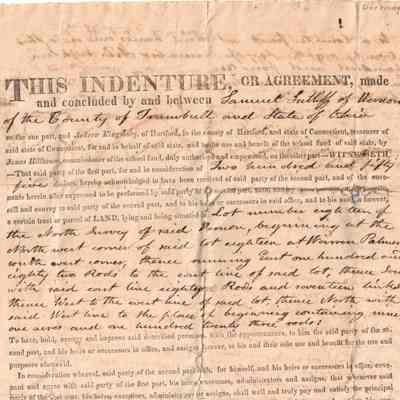 THIS INDENTURE, OR AGREEMENT, made
and concluded by and between Samuel Sutliff of Vernon
of the County of Trumbull and State of Ohio
on the one part, and Andrew Kingsbury, of Hartford, in the county of Hartford, and state of Connecticut, treasurer of
said state of Connecticut, for and in behalf of said state, and to the use and benefit of the school fund of said state, by
James Hillhouse, commissioner of the school fund, duly authorised and empowered, on the other part—WITNESSETH:
—That said party of the first part, for and in consideration of Two hundred and fifty
five dollars, hereby acknowledged to have been received of said party of the second part, and of the
nants herein after expressed to be performed by said party of the second part,
sell and convey to said party of the second part, and to his successors in said office, and to his assigns forever,
a certain tract or parcel of LAND, lying and being situated Lot number eighteen of
the North Survey of said Vernon, beginning at the
North west corner of said lot eighteen at Warren Palmers
south west corner, thence running East one hundred and
eighty two Rods to the east line of said lot, thence
with said east line eighty Rods and seventeen links
thence West to the west line of said lot, thence North with
said West line to the place of beginning containing nine
one acres and one hundred twenty three rods:
To have, hold, occupy and improve said described premises with the appurtenances, to him the said party of the
cond part, and his heirs or successors in office, and assigns forever, to his and their sole use and benefit for the use and
purposes aforesaid.
In consideration whereof, said party of the second part doth, for himself, and his heirs or successors in office,
nant and agree with said party of the first part, his heirs, executors, administrators and assigns, that whenever said
party of the first part, his heirs, executors, administrators or assigns, shall well and truly pay and satisfy the principal